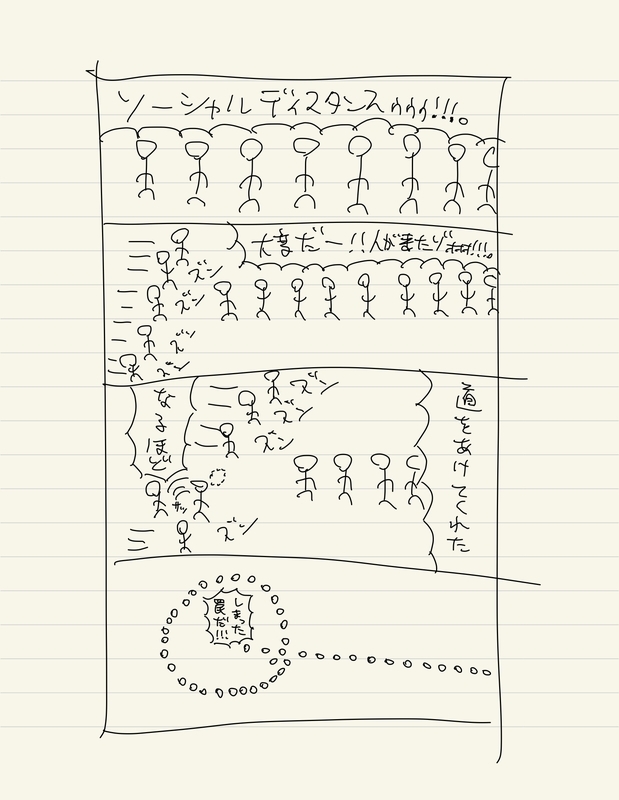 ソーシャルディスタンスゥゥゥ!!!。
大変だー!!人が来たり
ズン
ズン
ズン
ズン
ズン
ズン
ズン
道をあけてくれた
なるほど
サッ
ズン
しまった
罠だ!!!